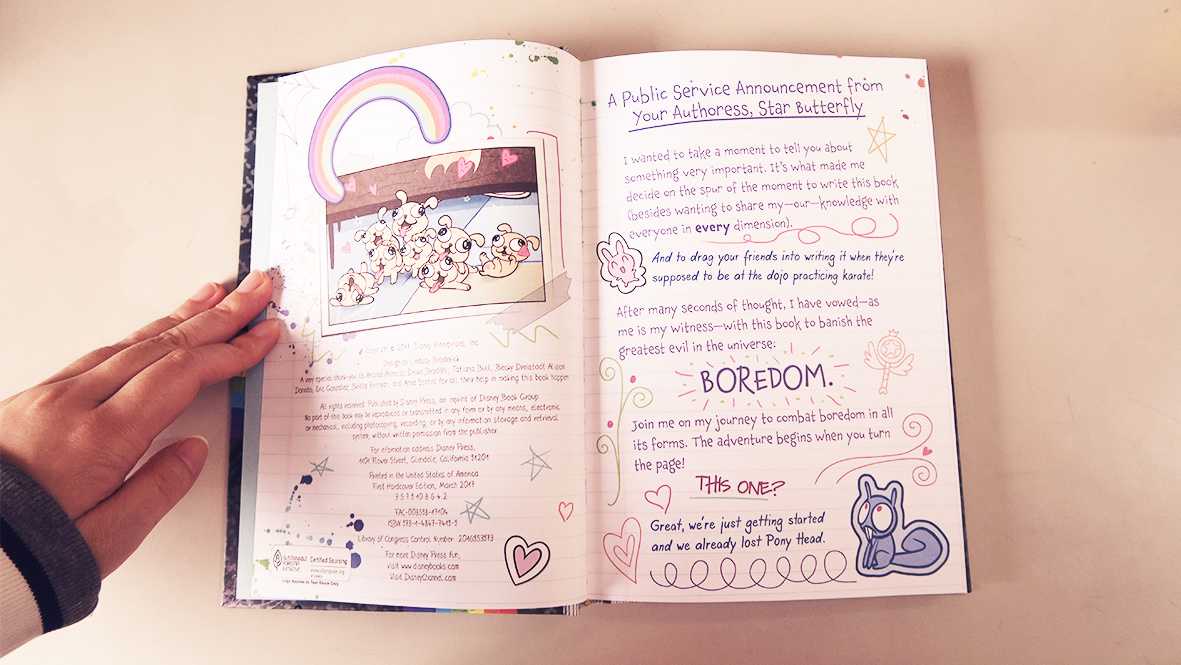 © Copyright © 2017 Disney Enterprises, Inc.
Design by Lindsay Broderick
A very special thank-you to Andrea Atencio, Becky Dreistadt, Alison
Donato, Eric Gonzalez, and for all their help in making this book happen
All rights reserved. Published by Disney Press, an imprint of Disney Book Group.
No part of this book may be reproduced or transmitted in any form or by any means, electronic
or mechanical, including photocopying, recording, or by any information storage and retrieval
system, without written permission from the publisher.
For information address Disney Press,
1101 Flower Street, Glendale, California 91201
Printed in the United States of America
First Hardcover Edition, March 2017
3 5 7 9 10 8 6 4 2
Library of Congress Control Number:
For more Disney Press fun,
visit www.disneybooks.com
Visit DisneyChannel.com
SUSTAINABLE
FORESTRY
INITIATIVE
Certified Sourcing
www.sfiprogram.org
Logo Applies to Text Stock Only
A Public Service Announcement from
Your Authoress, Star Butterfly
I wanted to take a moment to tell you about
something very important. It's what made me
decide on the spur of the moment to write this book
(besides wanting to share my—our—knowledge with
everyone in every dimension).
And to drag your friends into writing it when they're
supposed to be at the dojo practicing karate!
After many seconds of thought, I have vowed—as
me is my witness—with this book to banish the
greatest evil in the universe:
BOREDOM.
Join me on my journey to combat boredom in all
its forms. The adventure begins when you turn
the page!
THIS ONE?
Great, we're just getting started
and we already lost Pony Head.